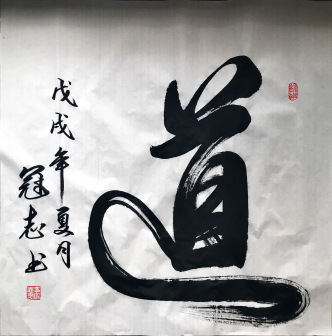 道
戊戌年夏月
冠志书